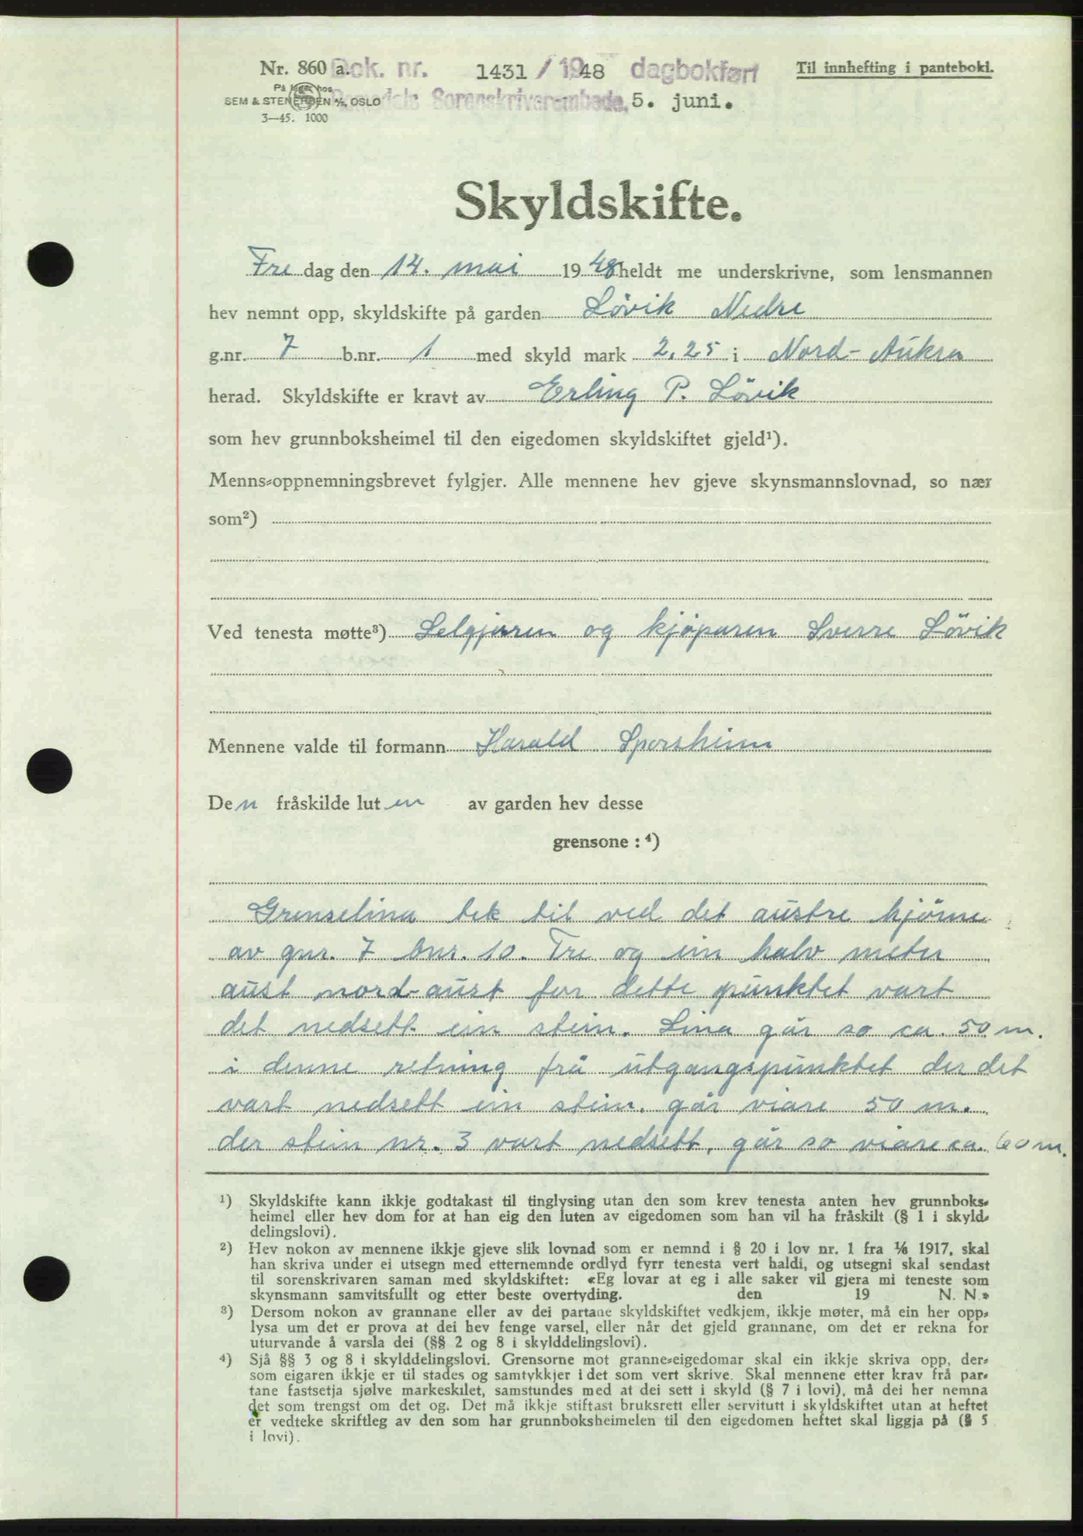 Nr. 860 a. Dok. nr. 1431 / 1948 dagbokført Til innhefting i pantebok.
På lager hos
SEM & STENERSEN A/S, OSLO Romsdals Sorenskriverembede, 5. juni.
3—45. 1000
Skyldskifte.
Fredag den 14. mai 1948 heldt me underskrivne, som lensmannen
hev nemnt opp, skyldskifte på garden Lövik Nedre
g.nr. 7 b.nr. 1 med skyld mark 2,25 i Nord-Aukra
herad. Skyldskifte er kravt av Erling P. Lövik
som hev grunnboksheimel til den eigedomen skyldskiftet gjeld¹).
Menns-oppnemningsbrevet fylgjer. Alle mennene hev gjeve skynsmannslovnad, so nær
som²)
Ved tenesta møtte³) Selgjaren og kjöparen Sverre Lövik
Mennene valde til formann Harald Sporsheim
Den fråskilde luten av garden hev desse
grensone : ⁴)
Grenselina tek til ved det austre hjörne
av gnr. 7 bnr. 10. Tre og ein halv meter
aust nord-aust for dette punktet vart
det nedsett ein stein. Lina går so ca. 50 m.
i denne retning frå utgangspunktet der det
vart nedsett ein stein, går viare 50 m.
der stein nr. 3 vart nedsett, går so viare ca. 60 m.
¹) Skyldskifte kann ikkje godtakast til tinglysing utan den som krev tenesta anten hev grunnboks-
heimel eller hev dom for at han eig den luten av eigedomen som han vil ha fråskilt (§ 1 i skyld-
delingslovi).
²) Hev nokon av mennene ikkje gjeve slik lovnad som er nemnd i § 20 i lov nr. 1 fra 1/6 1917, skal
han skriva under ei utsegn med etternemnde ordlyd fyrr tenesta vert haldi, og utsegni skal sendast
til sorenskrivaren saman med skyldskiftet: «Eg lovar at eg i alle saker vil gjera mi teneste som
skynsmann samvitsfullt og etter beste overtyding. den 19 N. N.»
³) Dersom nokon av grannane eller av dei partane skyldskiftet vedkjem, ikkje møter, må ein her opp-
lysa um det er prova at dei hev fenge varsel, eller når det gjeld grannane, om det er rekna for
uturvande å varsla dei (§§ 2 og 8 i skylddelingslovi).
⁴) Sjå §§ 3 og 8 i skylddelingslovi. Grensorne mot granne-eigedomar skal ein ikkje skriva opp, der-
som eigaren ikkje er til stades og samtykkjer i det som vert skrive. Skal mennene etter krav frå par-
tane fastsetja sjølve markeskilet, samstundes med at dei sett i skyld (§ 7 i lovi), må dei her nemna
det som trengst om det og. Det må ikkje stiftast bruksrett eller servitutt i skyldskiftet utan at heftet
er vedteke skriftleg av den som har grunnboksheimelen til den eigedomen heftet skal liggja på (§ 5
i lovi).